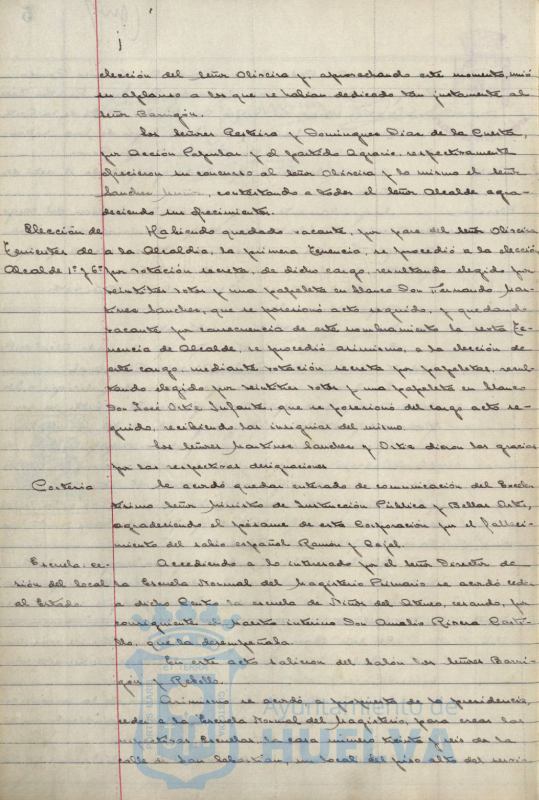 elección del Señor Oliveira y, aprovechando este momento, unió
su aplauso a los que se habían dedicado tan justamente al
Señor Barrigón.
Los Señores Resteiro y Dominguez Diaz de la Cuesta,
por Acción Popular y el partido Agrario, respectivamente
ofrecieron su concurso al Señor Oliveira y lo mismo el Señor
Sanchez, contestando a todos el Señor Alcalde agra-
deciendo sus ofrecimientos.
Elección de
Tenientes de
Alcalde 1º y 6º
Habiendo quedado vacante, por pase del Señor Oliveira
a la Alcaldia, la primera Tenencia, se procedió a la elección
por votación secreta, de dicho cargo, resultando elegido por
veintitres votos y una papeleta en blanco Don Fernando Mar-
tinez Sanchez, que se posesionó acto seguido, y quedando
vacante por consecuencia de este nombramiento la sexta Te-
nencia de Alcalde, se procedió asimismo, a la elección de
este cargo, mediante votación secreta por papeletas, resul-
tando elegido por veintitres votos y una papeleta en blanco
Don José Ortiz Infante, que se posesionó del cargo acto se-
guido, recibiendo las insignias del mismo.
Los Señores Martinez Sanchez y Ortiz dieron las gracias
por las respectivas designaciones
Cortesia
Se acordó quedar enterado de comunicación del Excelen-
tísimo Señor Ministro de Instrucción Pública y Bellas Artes,
agradeciendo el pésame de esta Corporación por el falleci-
miento del sabio español Ramón y Cajal.
Escuela: ce-
sión del local
al Estado
Accediendo a lo interesado por el Señor Director de
la Escuela Normal del Magisterio Primario se acordó ceder
a dicho Centro la escuela de Niños del Ateneo, cesando, por
consiguiente el Maestro interino Don Amalio Rivera Casti-
llo, que la desempeñaba.
En este acto salieron del salón los Señores Barri-
gón y Rebollo.
Asimismo se acordó a propuesta de la presidencia,
ceder a la Escuela Normal del Magisterio, para crear las
respectivas Escuelas, la casa número treinta y seis de la
calle de San Sebastián, un local del piso alto del
Ayuntamiento de
HUELVA